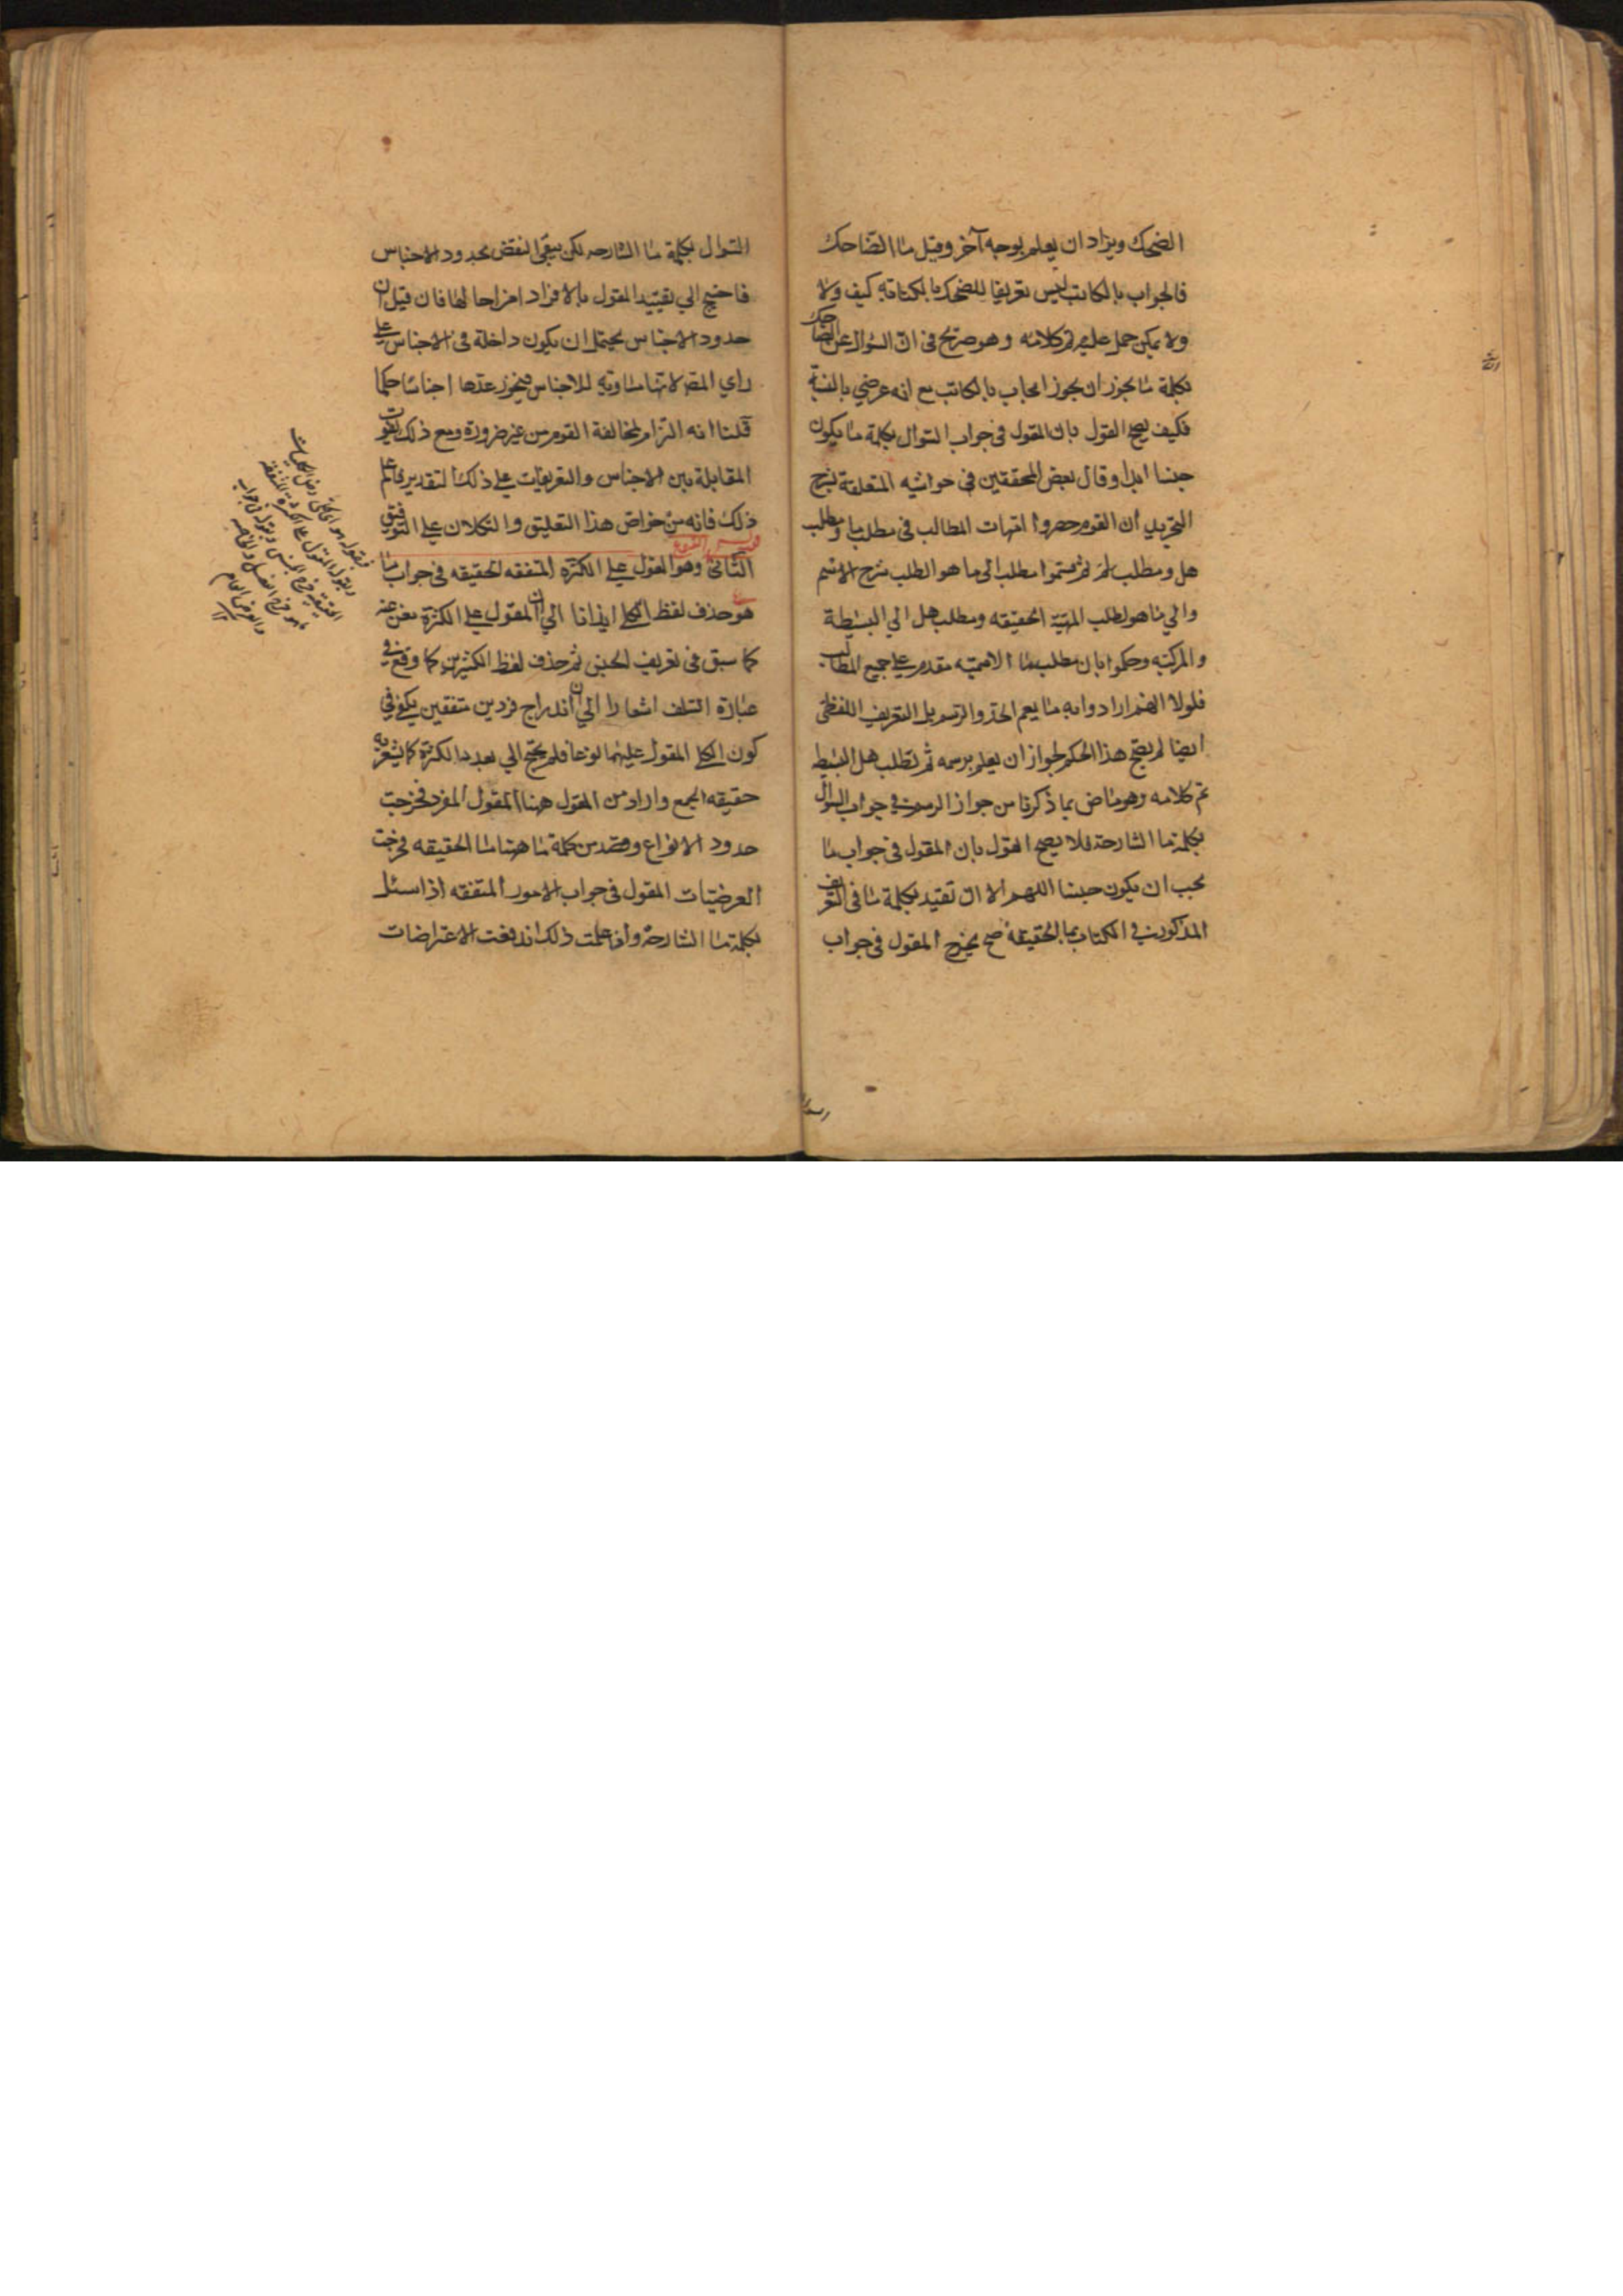 الضحك ويراد ان يعلم بوجه آخر وقيل ما الضاحك
فالجواب بالكاتب ليس تعريفا للضحك بالكتابة كيف ولا
ولا يمكن حمل عليه تم كلامه وهو صريح في ان السؤال عن الضاحك
بكلمة ما يجوز ان يجوز ايجاب بالكاتب مع انه عرضي بالنسبة
فكيف يصح القول بان المقول في جواب السوال بكلمة ما يكون
جنسا ابدا وقال بعض المحققين في حواشيه المتعلقة بشرح
التجريد ان القوم حصروا امهات المطالب في مطلب ما ومطلب
هل ومطلب لم ثم قسموا مطلب الى ما هو الطلب شرح الاسم
والي ما هو لطلب المهية الحقيقه ومطلب هل الي البسيطة
والمركبه وحكموا بان مطلب ما الاسميه مقدم علي جميع المطالب
فلولا انهم ارادوا به ما يعم الحد والرسم بل التعريف اللفظي
ايضا لم يصح هذا الحكم لجواز ان يعلم برسمه ثم تطلب هل البسيط
تم كلامه وهو ناص بما ذكرنا من جواز الرسم في جواب السوال
بكلمة ما الشارحة فلا يصح القول بان المقول في جواب ما
يجب ان يكون جنسا اللهم الا ان تقيد بكلمة ما في التعريف
المذكور في الكتاب بما الحقيقة صح يخرج المقول في جواب
السوال بكلمة ما الشارحه لكن يبقى النقض بحدود الاجناس
فاحتيج الي تقييد المقول بالافراد اخراجا لها فان قيل ان
حدود الاجناس يحتمل ان يكون داخلة في الاجناس علي
راي المصر لانها مساوية للاجناس فيجوز عدها اجناسا حكما
قلنا انه التزام لمخالفة القوم من غير ضرورة ومع ذلك يفوت
المقابلة بين الاجناس والتعريفات علي ذلك التقدير فاعلم
ذلك فانه من خواص هذا التعليق والتكلان علي التوفيق
الثاني وهو المقول علي الكثرة المتفقه الحقيقه في جواب ما
هو حذف لفظ الكلي ايذانا الي ان المقول علي الكثرة مغن عنه
كما سبق في تعريف الجنس ثم حذف لفظ الكثيرين كما وقع في
عبارة السلف اشعارا الي ان اندراج فردين متفقين يكفي في
كون الكلي المقول عليهما نوعا فلم يحتج الي بعد ما الكثرة كما يشعر به
حقيقه الجمع واراد من المقول ههنا المقول المفرد فخرجت
حدود الانواع وقصد من كلمة ما ههنا ما الحقيقه فخرجت
العرضيات المقول في جواب الامور المتفقه اذا سئل
بكلمة ما الشارحة واذ علمت ذلك اندفعت الاعتراضات